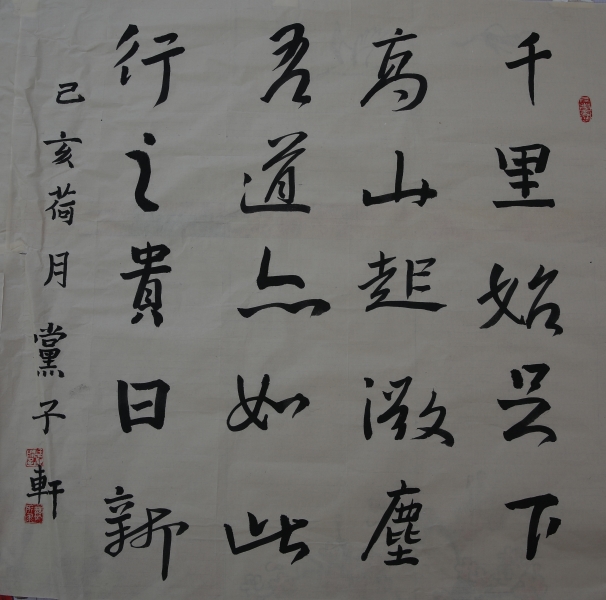 千里始足下
高山起微塵
吾道亦如此
行之貴日新
己亥荷月黨子軒